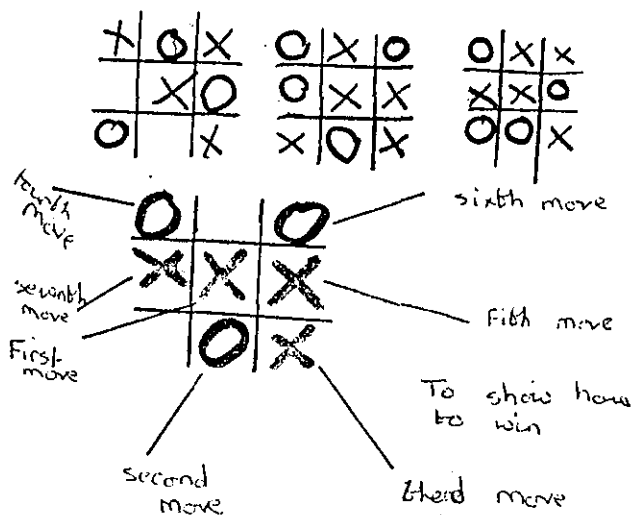 X O X
X O
O X
O X O
O X X
X O X
O X X
X X O
O O X
fourth
move
sixth move
O O
X X X
O X
seventh
move
Fifth move
First
move
To show how
to win
second
move
therd move